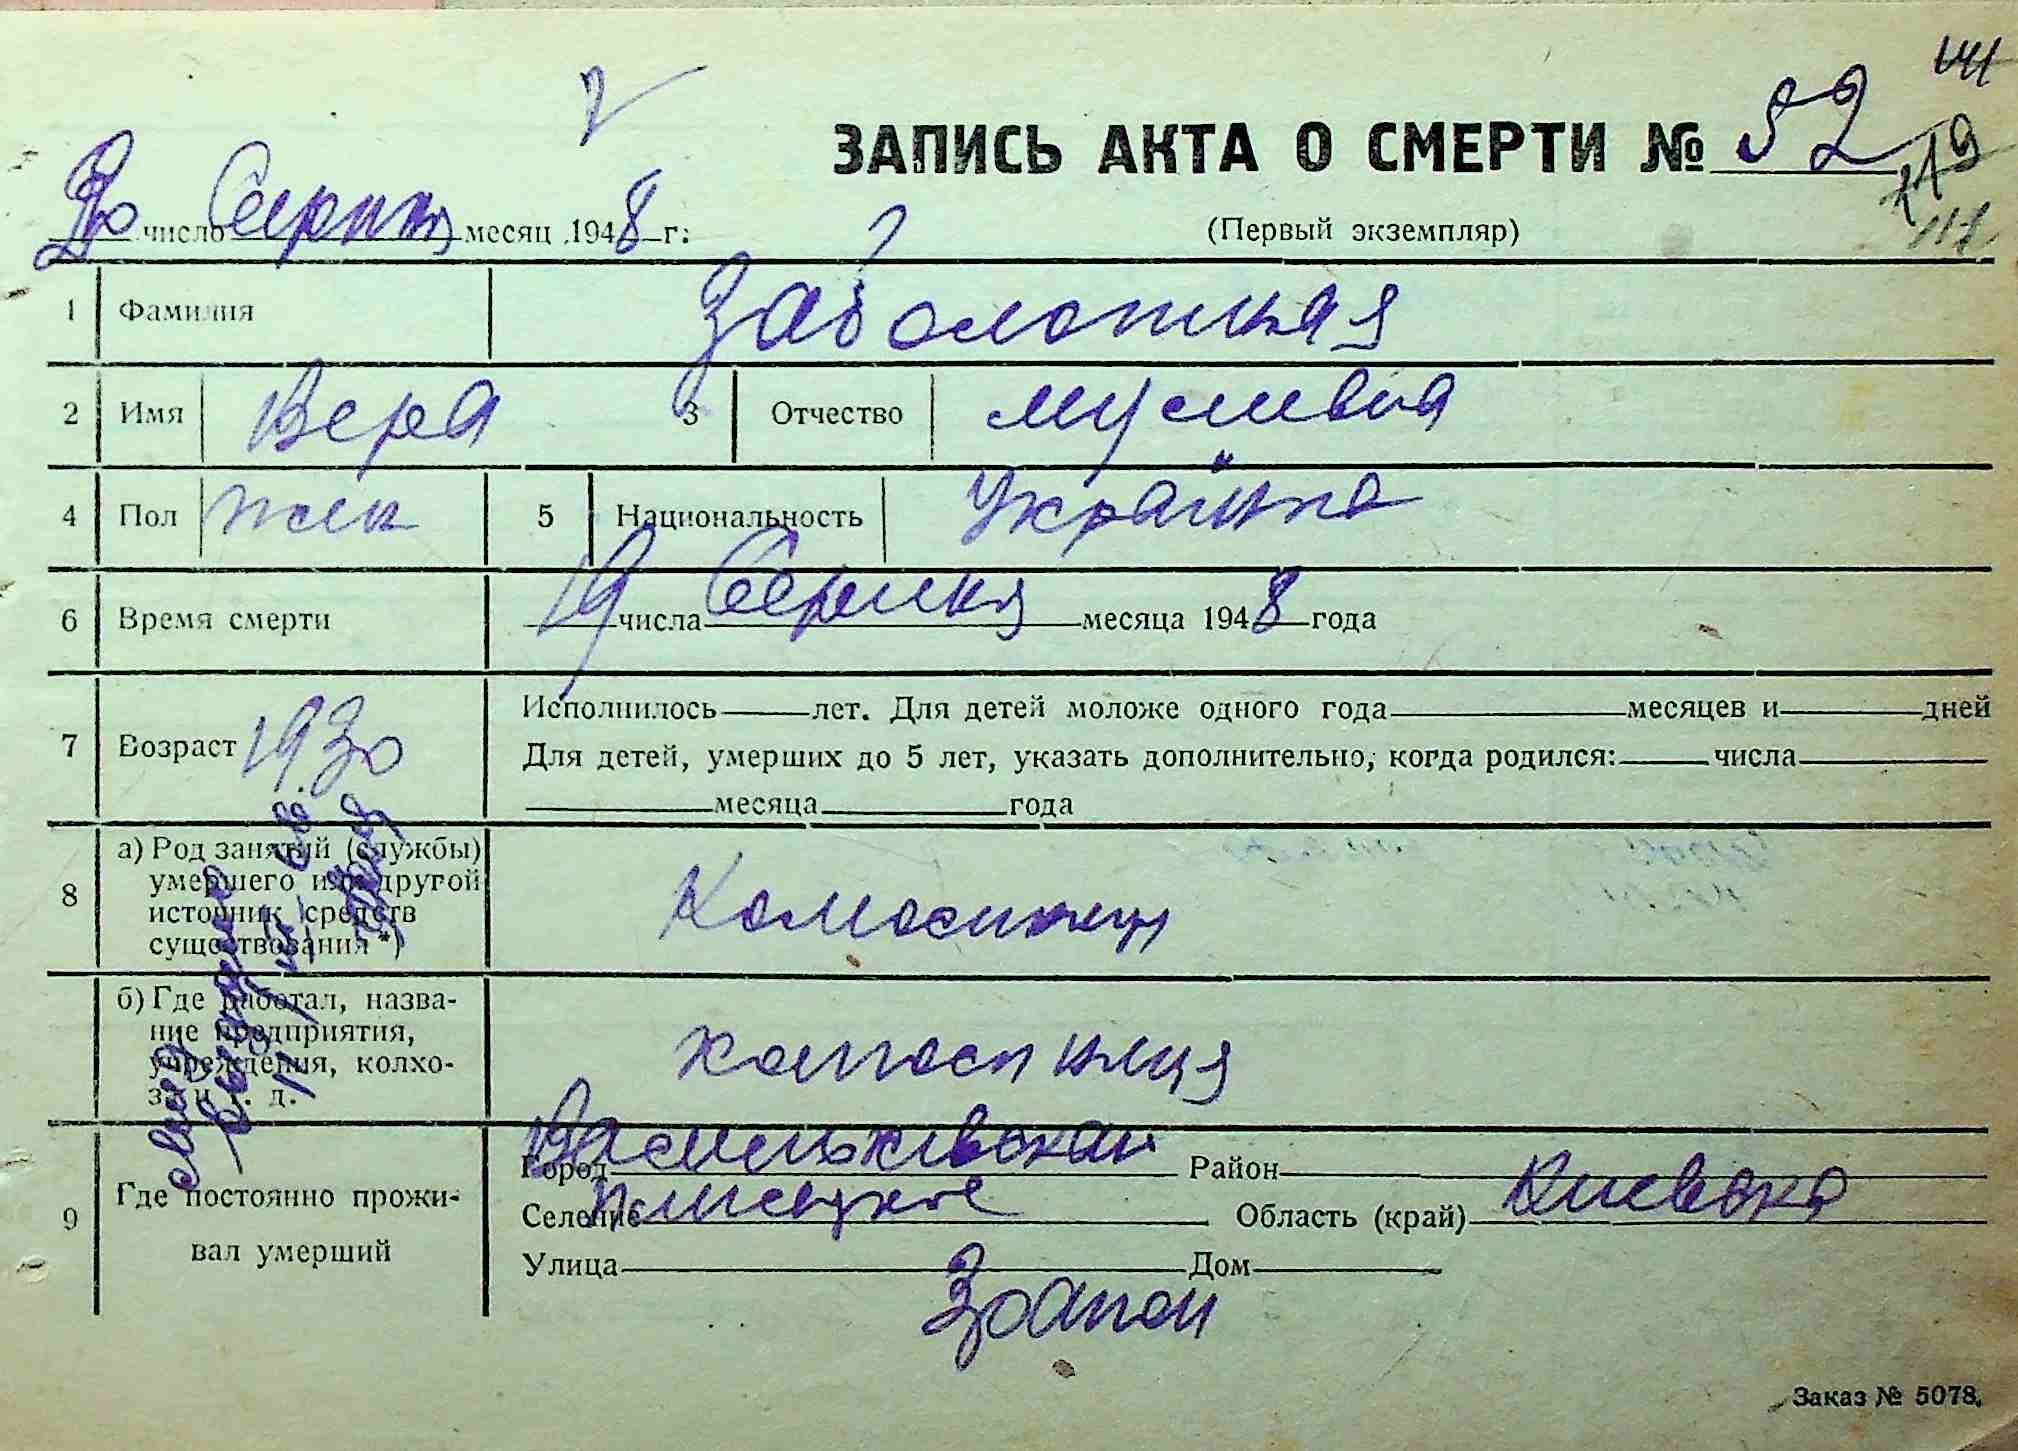 141
ЗАПИСЬ АКТА О СМЕРТИ № 52
119
20 число Серпня месяц 1948 г.
(Первый экземпляр)
111
1 Фамилия Заболотная
2 Имя Вера 3 Отчество Мусиевна
4 Пол жен 5 Национальность Українка
6 Время смерти 19 числа Серпня месяца 1948 года
7 Возраст 1930 Исполнилось лет. Для детей моложе одного года месяцев и дней
Для детей, умерших до 5 лет, указать дополнительно, когда родился: числа
месяца года
8 а) Род занятий (службы)
умершего или другой
источник средств
существования *)
б) Где работал, назва-
ние предприятия,
учреждения, колхо-
за и т. д.
9 Где постоянно прожи-
вал умерший
Город Васильківский Район
Селение Плисецкое Область (край) Киевска
Улица Дом
Заказ № 5078.